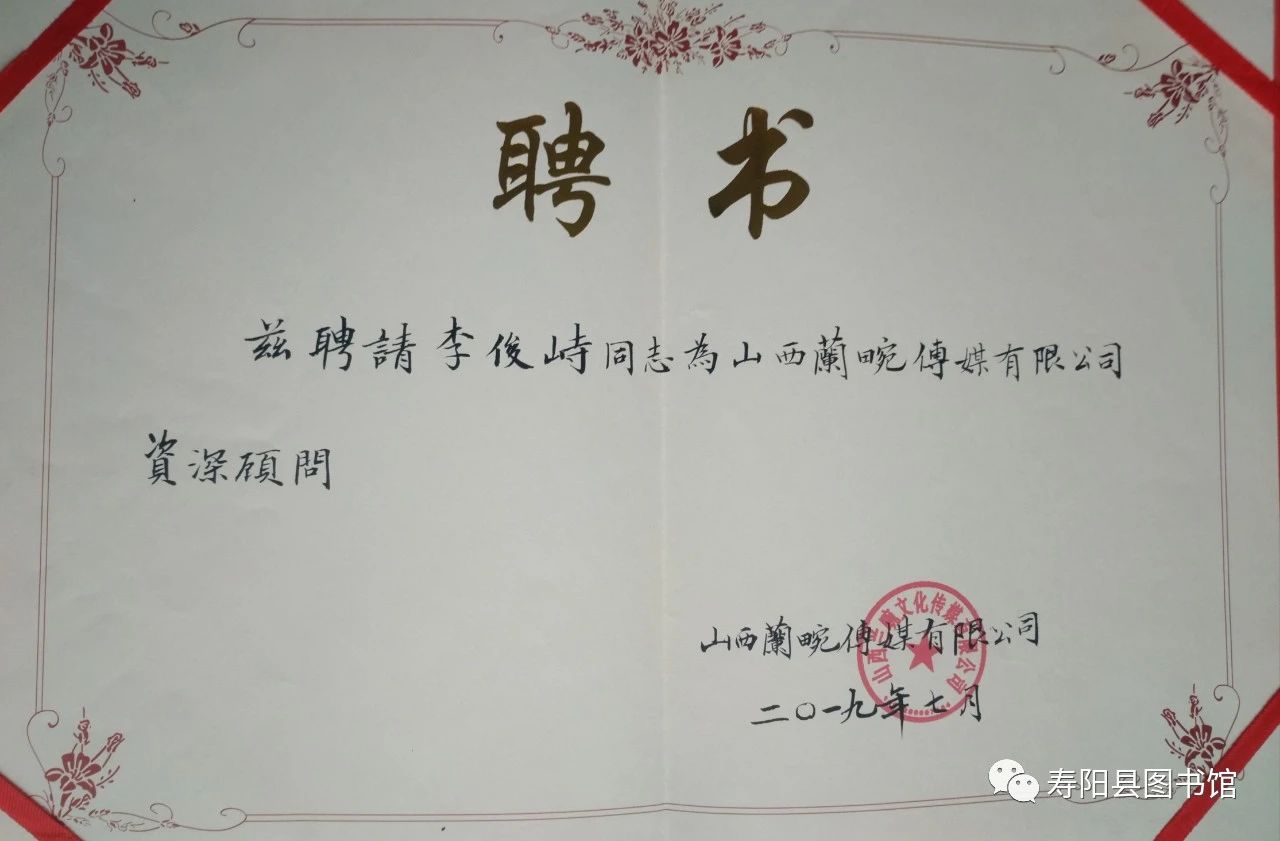 聘书
兹聘請李俊峙同志為山西蘭畹傳媒有限公司
資深顧問
山西蘭畹傳媒有限公司
二〇一九年七月
寿阳县图书馆